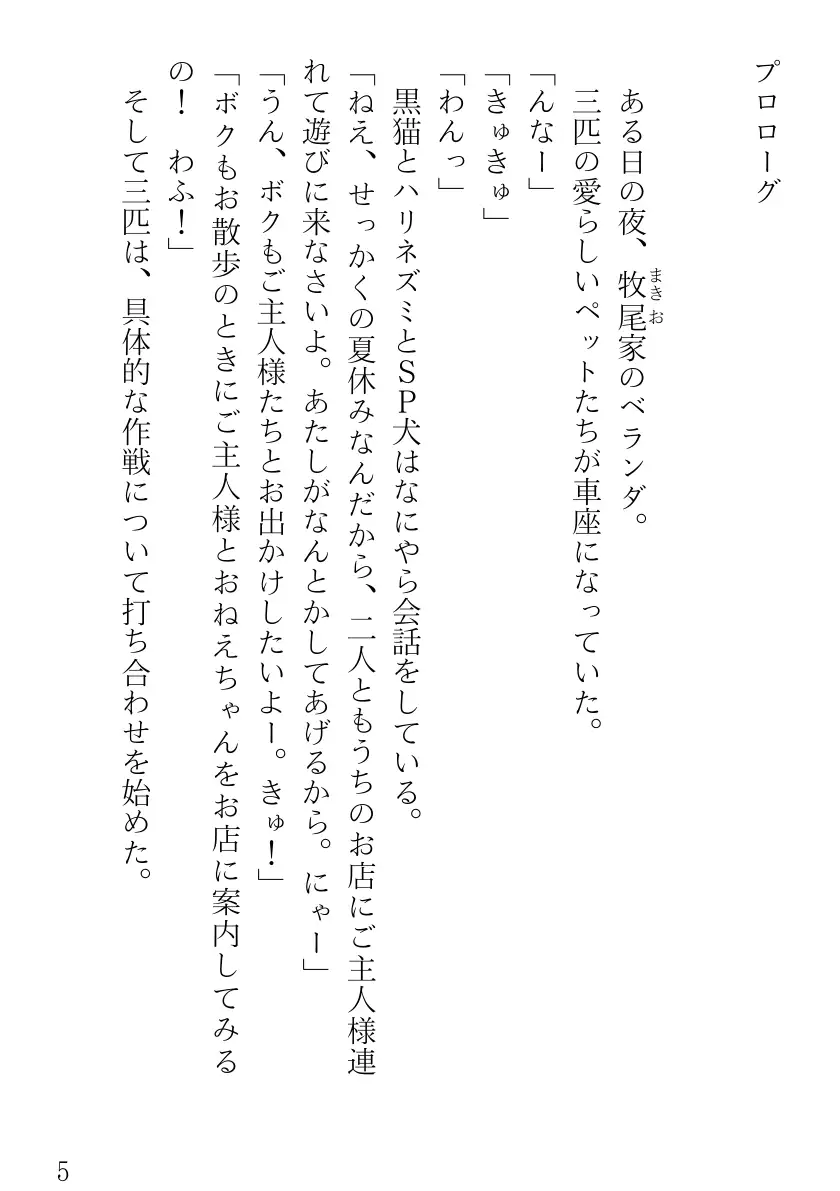 プロローグ
ある日の夜、牧尾家のベランダ。
まきお
三匹の愛らしいペットたちが車座になっていた。
「んなー」
「きゅきゅ」
「わんっ」
黒猫とハリネズミとＳＰ犬はなにやら会話をしている。
「ねえ、せっかくの夏休みなんだから、二人ともうちのお店にご主人様連
れて遊びに来なさいよ。あたしがなんとかしてあげるから。にゃー」
「うん、ボクもご主人様たちとお出かけしたいよー。きゅ！」
「ボクもお散歩のときにご主人様とおねえちゃんをお店に案内してみる
の！　わふ！」
そして三匹は、具体的な作戦について打ち合わせを始めた。
5